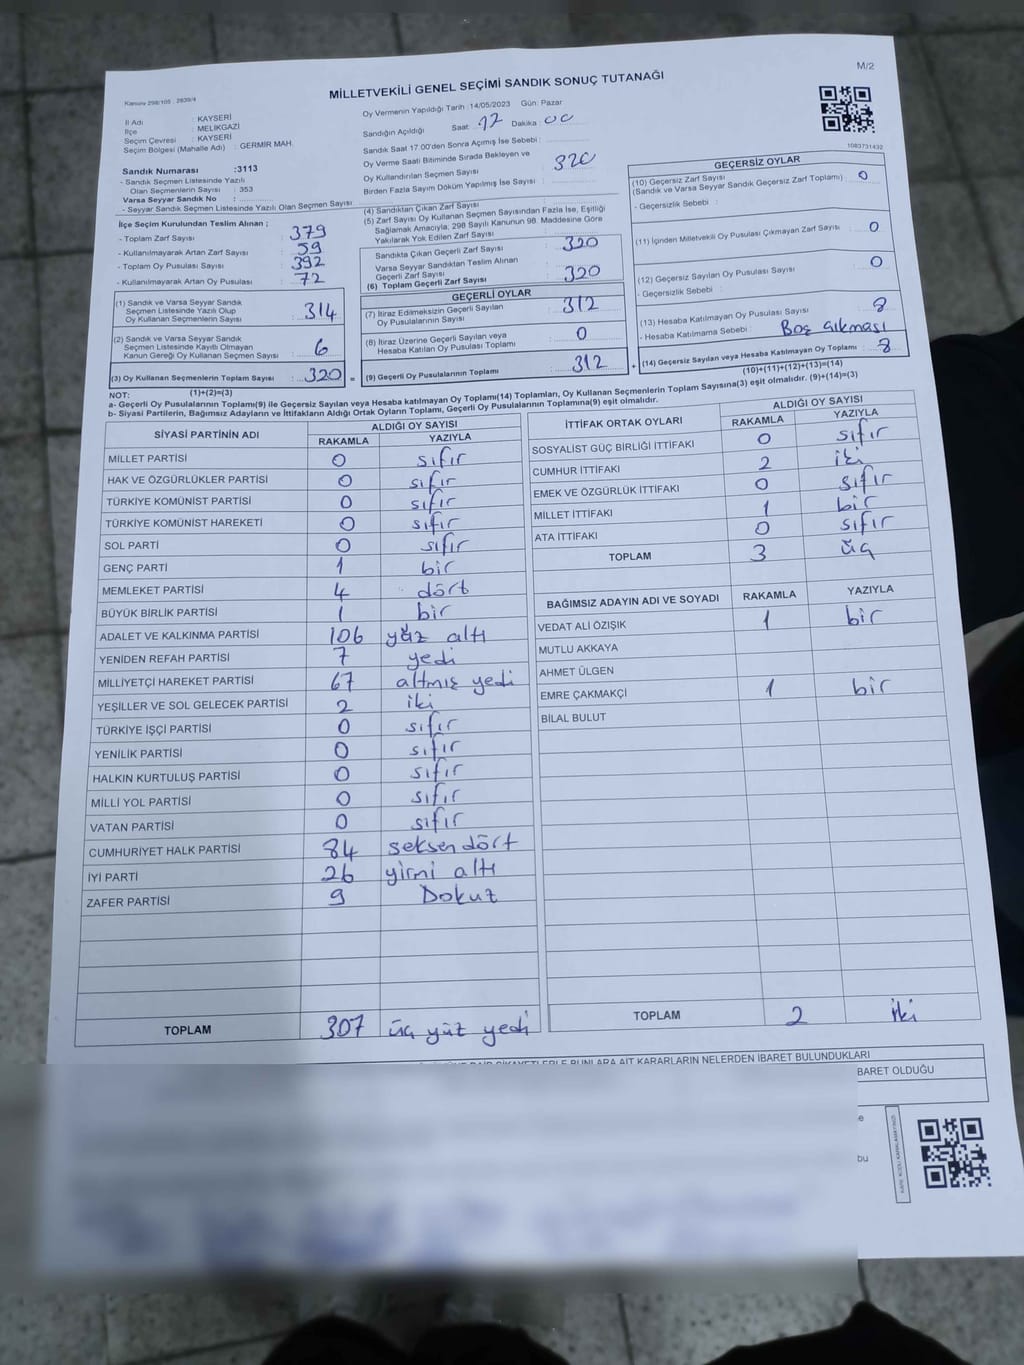 M/2
Kanunu 298/105 : 2839/4
MİLLETVEKİLİ GENEL SEÇİMİ SANDIK SONUÇ TUTANAĞI
İl Adı : KAYSERİ
İlçe : MELİKGAZİ
Seçim Çevresi : KAYSERİ
Seçim Bölgesi (Mahalle Adı) : GERMİR MAH.
Sandık Numarası :3113
- Sandık Seçmen Listesinde Yazılı
Olan Seçmenlerin Sayısı : 353
Varsa Seyyar Sandık No :
- Seyyar Seçmen Listesinde Yazılı Olan Seçmen Sayısı
Oy Vermenin Yapıldığı Tarih :14/05/2023 Gün: Pazar
Sandığın Açıldığı Saat: 17 Dakika: 00
Sandık Saat 17.00'den Sonra Açılmış İse Sebebi :
Oy Verme Saati Bitiminde Sırada Bekleyen ve
Oy Kullandırılan Seçmen Sayısı 320
Birden Fazla Sayım Döküm Yapılmış İse Sayısı :
İlçe Seçim Kurulundan Teslim Alınan ;
- Toplam Zarf Sayısı : 379
- Kullanılmayarak Artan Zarf Sayısı : 59
- Toplam Oy Pusulası Sayısı : 392
- Kullanılmayarak Artan Oy Pusulası : 72
(1) Sandık ve Varsa Seyyar Sandık
Seçmen Listesinde Yazılı Olup
Oy Kullanan Seçmenlerin Sayısı : 314
(2) Sandık ve Varsa Seyyar Sandık
Seçmen Listesinde Kayıtlı Olmayan
Kanun Gereği Oy Kullanan Seçmen Sayısı : 6
(3) Oy Kullanan Seçmenlerin Toplam Sayısı : 320 =
(1)+(2)=(3)
(4) Sandıktan Çıkan Zarf Sayısı
(5) Zarf Sayısı Oy Kullanan Seçmen Sayısından Fazla İse, Eşitliği
Sağlamak Amacıyla, 298 Sayılı Kanunun 98. Maddesine Göre
Yakılarak Yok Edilen Zarf Sayısı
Sandıkta Çıkan Geçerli Zarf Sayısı : 320
Varsa Seyyar Sandıktan Teslim Alınan
Geçerli Zarf Sayısı
(6) Toplam Geçerli Zarf Sayısı : 320
GEÇERLİ OYLAR
(7) İtiraz Edilmeksizin Geçerli Sayılan
Oy Pusulalarının Sayısı : 312
(8) İtiraz Üzerine Geçerli Sayılan veya
Hesaba Katılan Oy Pusulası Toplamı : 0
(9) Geçerli Oy Pusulalarının Toplamı : 312 +
1083731432
GEÇERSİZ OYLAR
(10) Geçersiz Zarf Sayısı
(Sandık ve Varsa Seyyar Sandık Geçersiz Zarf Toplamı) : 0
- Geçersizlik Sebebi :
(11) İçinden Milletvekili Oy Pusulası Çıkmayan Zarf Sayısı : 0
(12) Geçersiz Sayılan Oy Pusulası Sayısı : 0
- Geçersizlik Sebebi :
(13) Hesaba Katılmayan Oy Pusulası Sayısı : 8
- Hesaba Katılmama Sebebi : Boş çıkması
(14) Geçersiz Sayılan veya Hesaba Katılmayan Oy Toplamı : 8
(10)+(11)+(12)+(13)=(14)
NOT:
a- Geçerli Oy Pusulalarının Toplamı(9) ile Geçersiz Sayılan veya Hesaba katılmayan Oy Toplamı(14) Toplamları, Oy Kullanan Seçmenlerin Toplam Sayısına(3) eşit olmalıdır. (9)+(14)=(3)
b- Siyasi Partilerin, Bağımsız Adayların ve İttifakların Aldığı Ortak Oyların Toplamı, Geçerli Oy Pusulalarının Toplamına(9) eşit olmalıdır.
SİYASİ PARTİNİN ADI ALDIĞI OY SAYISI
RAKAMLA YAZIYLA
MİLLET PARTİSİ 0 sıfır
HAK VE ÖZGÜRLÜKLER PARTİSİ 0 sıfır
TÜRKİYE KOMÜNİST PARTİSİ 0 sıfır
TÜRKİYE KOMÜNİST HAREKETİ 0 sıfır
SOL PARTİ 0 sıfır
GENÇ PARTİ 1 bir
MEMLEKET PARTİSİ 4 dört
BÜYÜK BİRLİK PARTİSİ 1 bir
ADALET VE KALKINMA PARTİSİ 106 yüz altı
YENİDEN REFAH PARTİSİ 7 yedi
MİLLİYETÇİ HAREKET PARTİSİ 67 altmış yedi
YEŞİLLER VE SOL GELECEK PARTİSİ 2 iki
TÜRKİYE İŞÇİ PARTİSİ 0 sıfır
YENİLİK PARTİSİ 0 sıfır
HALKIN KURTULUŞ PARTİSİ 0 sıfır
MİLLİ YOL PARTİSİ 0 sıfır
VATAN PARTİSİ 0 sıfır
CUMHURİYET HALK PARTİSİ 84 seksen dört
İYİ PARTİ 26 yirmi altı
ZAFER PARTİSİ 9 Dokuz
TOPLAM 307 üç yüz yedi
İTTİFAK ORTAK OYLARI ALDIĞI OY SAYISI
RAKAMLA YAZIYLA
SOSYALİST GÜÇ BİRLİĞİ İTTİFAKI 0 sıfır
CUMHUR İTTİFAKI 2 iki
EMEK VE ÖZGÜRLÜK İTTİFAKI 0 sıfır
MİLLET İTTİFAKI 1 bir
ATA İTTİFAKI 0 sıfır
TOPLAM 3 üç
BAĞIMSIZ ADAYIN ADI VE SOYADI RAKAMLA YAZIYLA
VEDAT ALİ ÖZIŞIK 1 bir
MUTLU AKKAYA
AHMET ÜLGEN
EMRE ÇAKMAKÇİ 1 bir
BİLAL BULUT
TOPLAM 2 İki
KARARLARIN NELERDEN İBARET BULUNDUKLARI
BARET OLDUĞU
bu